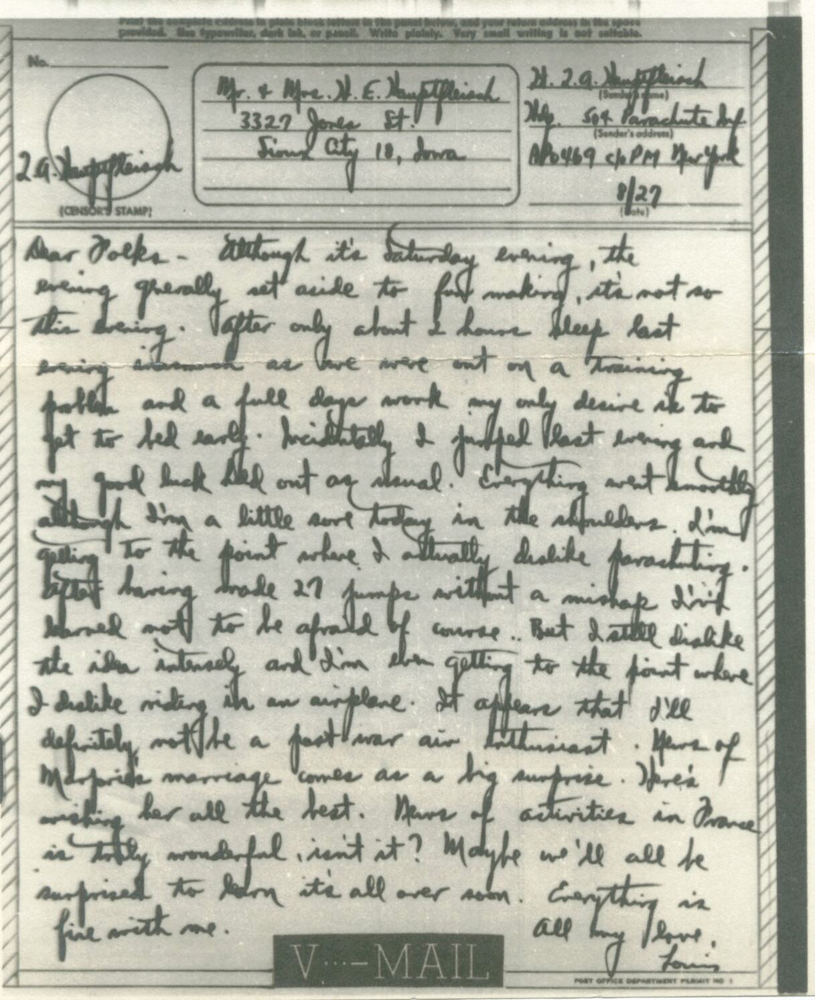 Print the complete address in plain block letters in the panel below, and your return address in the space
provided. Use typewriter, dark ink, or pencil. Write plainly. Very small writing is not suitable.
No.
Mr. & Mrs. H. E. Hauptfleisch
3327 Jones St.
Sioux City 18, Iowa
L. A. Hauptfleisch
(CENSOR'S STAMP)
Lt. L. A. Hauptfleisch
(Sender's name)
Hdq. 504 Parachute Inf
(Sender's address)
APO 469 c/o PM New York
8/27
(Date)
Dear Folks - Although it's Saturday evening, the
evening generally set aside to fun making, it's not so
this evening. After only about 2 hours sleep last
evening inasmuch as we were out on a training
problem and a full days work my only desire is to
get to bed early. Incidentally I jumped last evening and
my good luck held out as usual. Everything went smoothly
although I'm a little sore today in the shoulders. I'm
getting to the point where I actually dislike parachuting.
After having made 27 jumps without a mishap I've
learned not to be afraid of course.. But I still dislike
the idea intensely and I'm even getting to the point where
I dislike riding in an airplane. It appears that I'll
definitely not be a post war air enthusiast. News of
Marjorie's marriage comes as a big surprise. Here's
wishing her all the best. News of activities in France
is truly wonderful, isn't it? Maybe we'll all be
surprised to learn it's all over soon. Everything is
fine with me.
All my love,
Louis
V···—MAIL
POST OFFICE DEPARTMENT PERMIT NO 1